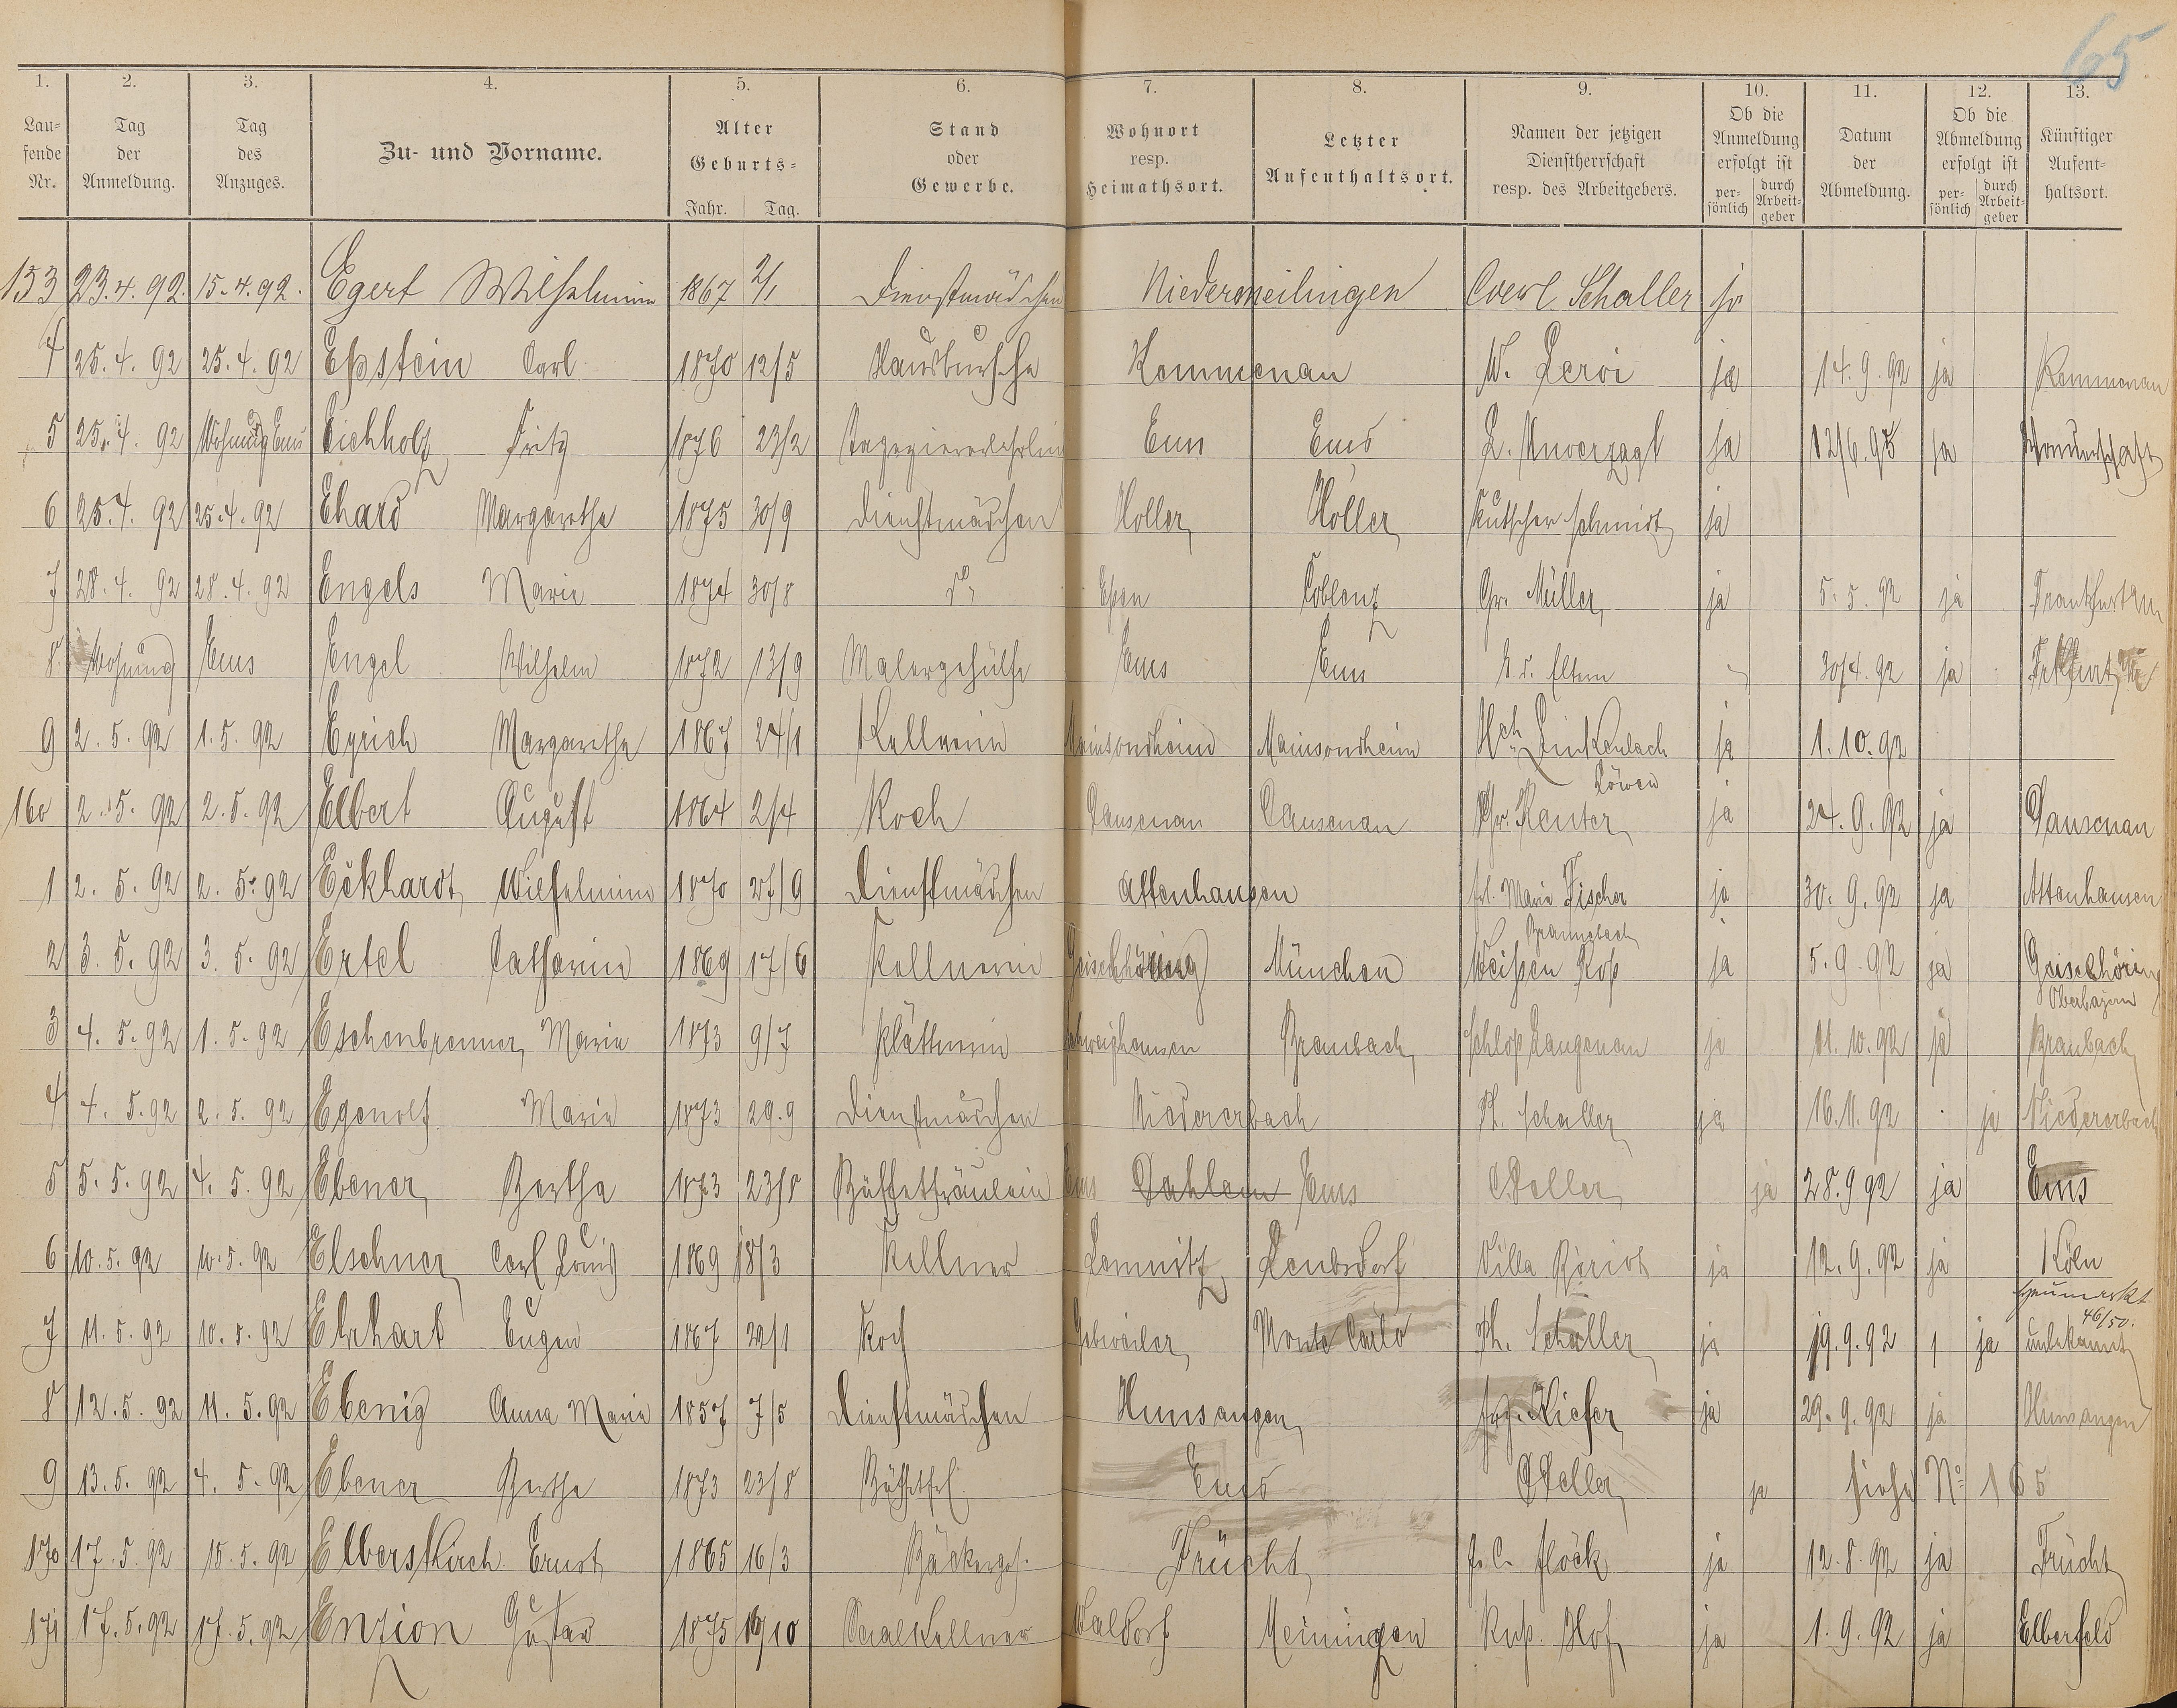 65
1. 2. 3. 4. 5. 6. 7. 8. 9. 10. 11. 12. 13.
Lau-
fende
Nr.
Tag
der
Anmeldung.
Tag
des
Anzuges.
Zu- und Vorname.
Alter
Geburts-
Jahr. Tag.
Stand
oder
Gewerbe.
Wohnort
resp.
Heimathsort.
Letzter
Aufenthaltsort.
Namen der jetzigen
Dienstherrschaft
resp. des Arbeitgebers.
Ob die
Anmeldung
erfolgt ist
per-
sönlich
durch
Arbeit-
geber
Datum
der
Abmeldung.
Ob die
Abmeldung
erfolgt ist
per-
sönlich
durch
Arbeit-
geber
Künftiger
Aufent-
haltsort.
153 23.4.92. 15.4.92. Egert Wilhelmine 1867 2/1 Dienstmädchen Niedermeilingen Schaller ja
4 25.4.92 25.4.92 Eßstein Carl 1870 12/5 Hausbursche Kemmenau W. Leroi ja 14.9.92 ja Kemmenau
5 25.4.92 Wohnung Ems Eichholz Fritz 1876 23/2 Tapeziererlehrling Ems Ems L. Unverzagt ja 12/6.95 ja Wanderschaft
6 25.4.92 25.4.92 Ehard Margarethe 1875 30/9 Dienstmädchen Holler Holler Kutscher Schmidt ja
7 28.4.92 28.4.92 Engels Marie 1874 30/8 do Essen Coblenz Chr. Müller ja 5.5.92 ja Frankfurt a/m
8 Wohnung Ems Engel Wilhelm 1872 13/9 Malergehülfe Ems Ems b. d. Eltern 30/4.92 ja Frkfurt
9 2.5.92 1.5.92 Eyrich Margarethe 1867 24/1 Kellnerin Mainsondheim Mainsondheim Hch Linkenbach ja 1.10.92
160 2.5.92 2.5.92 Elbert August 1864 2/4 Koch Dausenau Dausenau Chr. Reuter Löwen ja 24.9.92 ja Dausenau
1 2.5.92 2.5.92 Eckhardt Wilhelmine 1870 27/9 Dienstmädchen Attenhausen frl. Marie Fischer ja 30.9.92 ja Attenhausen
2 3.5.92 3.5.92 Ertel Catharine 1869 17/6 Kellnerin Geiselhöring München Weißen Roß ja 5.9.92 ja Geiselhöring
Oberbayern
3 4.5.92 1.5.92 Eschenbrenner Marie 1873 9/7 Plätterin Schweighausen Braubach Schloß Langenau ja 11.10.92 ja Braubach
4 4.5.92 2.5.92 Egenolf Marie 1873 29.9 Dienstmädchen Niedererbach Ph. Schaller ja 16.11.92 ja Niedererbach
5 5.5.92 4.5.92 Ebener Bertha 1873 23/8 Büffetfräulein Ems Dahlem Ems C. Peller ja 28.9 92 ja Ems
6 10.5.92 10.5.92 Elschner Carl Louis 1869 18/3 Kellner Lomnitz Villa ja 12.9.92 ja Köln
Heumarkt
46/50.
7 11.5.92 10.5.92 Ehrhart Eugen 1867 22/1 Koch Gebweiler Monte Carlo Ph. Schaller ja 19.9.92 ja unbekannt
8 12.5.92 11.5.92 Ebenig Anna Marie 1857 7/5 Dienstmädchen Hunsangen Kiefer ja 29.9.92 ja Hunsangen
9 13.5.92 4.5.92 Ebener Bertha 1873 23/8 Büffetfrl. Ems C. Peller ja siehe No 165
170 17.5.92 15.5.92 Elberskirch Ernst 1865 16/3 Bäckerges. Frücht F. C. Flöck ja 12.8.92 ja Frücht
171 17.5.92 17.5.92 Enzion Gustav 1875 19/10 Saalkellner Waldorf Meiningen Ruß. Hof ja 1.9.92 ja Elberfeld